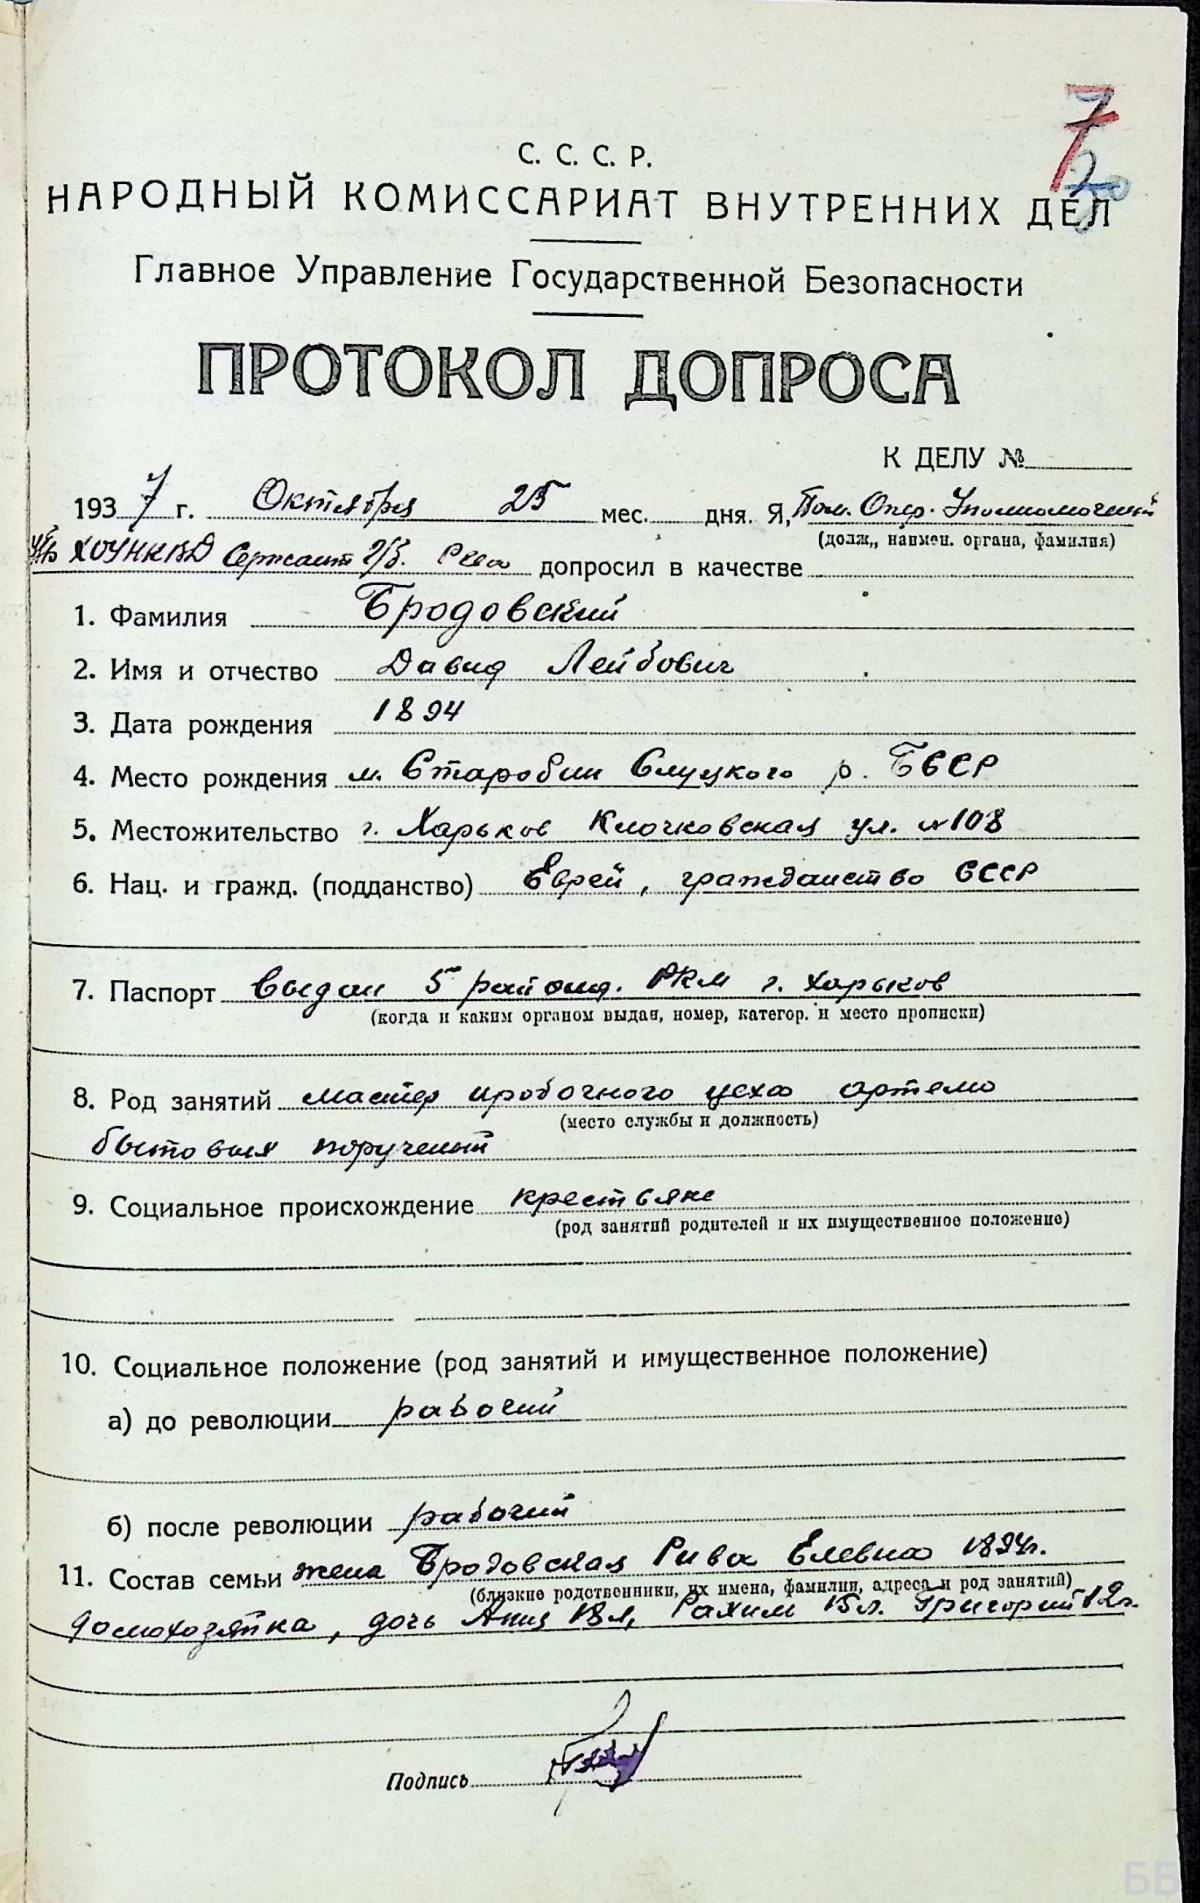 7
С. С. С. Р.
НАРОДНЫЙ КОМИССАРИАТ ВНУТРЕННИХ ДЕЛ
Главное Управление Государственной Безопасности
ПРОТОКОЛ ДОПРОСА
К ДЕЛУ №
1937 г. Октября 25 мес. дня. Я, Пом. Опер. Уполномоченый
(долж., наимен. органа, фамилия)
ХОУНКВД Сержант г/б. допросил в качестве
1. Фамилия Бродовский
2. Имя и отчество Давид Лейбович
3. Дата рождения 1894
4. Место рождения м. Старобин Слуцкого р. БССР
5. Местожительство г. Харьков Клочковская ул. №108
6. Нац. и гражд. (подданство) Еврей, гражданство СССР
7. Паспорт выдан 5 РКМ г. Харьков
(когда и каким органом выдан, номер, категор. и место прописки)
8. Род занятий мастер пробочного цеха артели
(место службы и должность)
бытовых поручений
9. Социальное происхождение крестьяне
(род занятий родителей и их имущественное положение)
10. Социальное положение (род занятий и имущественное положение)
а) до революции рабочий
б) после революции рабочий
11. Состав семьи жена Бродовская Рива 1894г.
(близкие родственники, их имена, фамилии, адреса и род занятий)
домохозяйка, дочь 18л, 15л. Григорий 12г.
Подпись
ББ